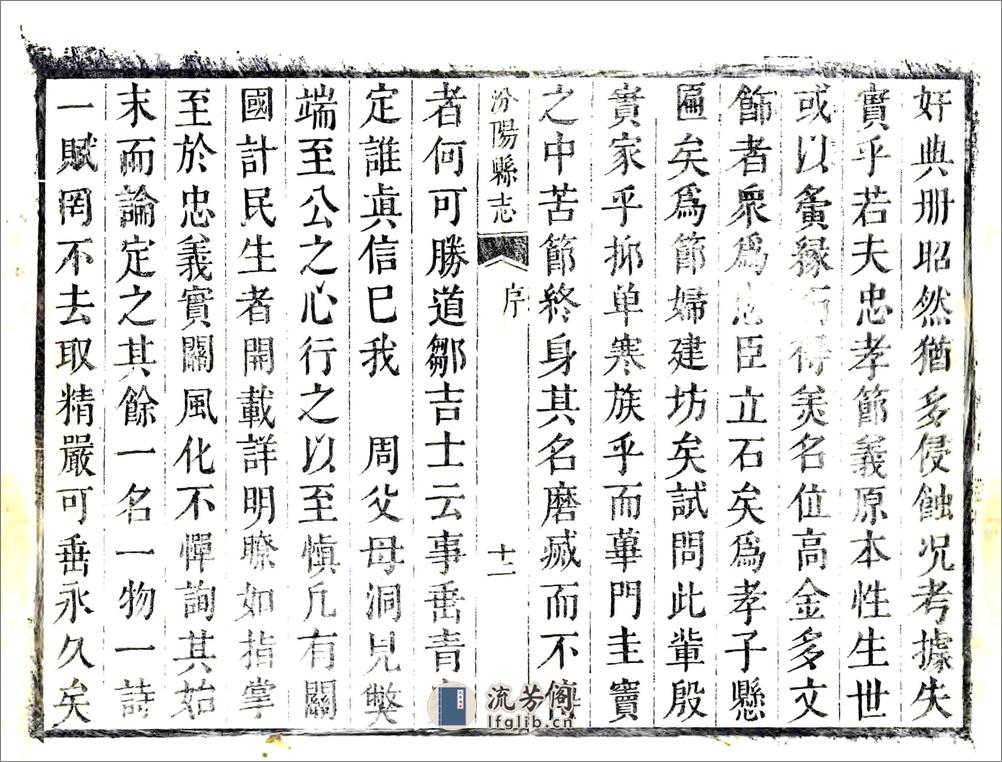 奸典册昭然猶多侵蝕况考據失
實乎若夫忠孝節義原本性生世
或以夤緣而得美名位高金多文
飾者衆爲忠臣立石矣爲孝子懸
匾矣爲節婦建坊矣試問此輩殷
實家乎抑单寒族乎而蓽門圭竇
之中苦節終身其名磨滅而不傳
汾陽縣志
序
十二
者何可勝道鄒吉士云事垂青
定誰眞信巳我 周父母洞見弊
端至公之心行之以至愼凡有關
國計民生者開載詳明瞭如指掌
至於忠義實關風化不憚詢其始
末而論定之其餘一名一物一詩
一賦罔不去取精嚴可垂永久矣
流芳阁
lfglib.cn